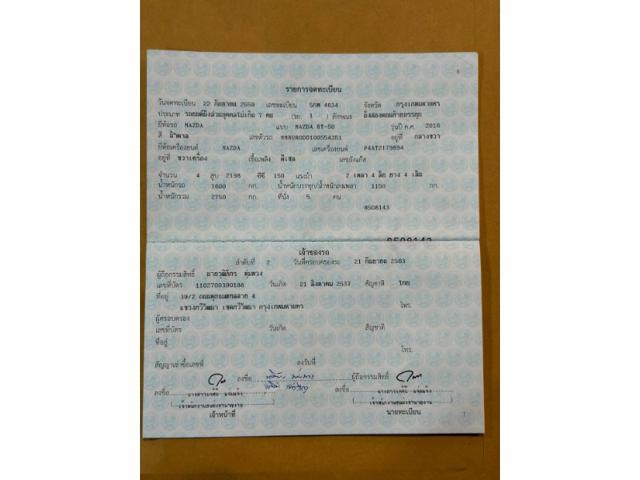 6
รายการจดทะเบียน
วันจดทะเบียน 22 กันยายน 2559 เลขทะเบียน 5กต 4634 จังหวัด กรุงเทพมหานคร
ประเภท รถยนต์นั่งส่วนบุคคลไม่เกิน 7 คน (รย. 1 ) ลักษณะ
ยี่ห้อรถ MAZDA แบบ MAZDA BT-50 รุ่นปี ค.ศ. 2016
สี น้ำตาล เลขตัวรถ อยู่ที่ กลางขวา
ยี่ห้อเครื่องยนต์ MAZDA เลขเครื่องยนต์ P4AT2179894
อยู่ที่ ขวาเครื่อง เชื้อเพลิง ดีเซล เลขถังแก๊ส
จำนวน 4 สูบ 2198 ซีซี 150 แรงม้า 2 เพลา 4 ล้อ ยาง 4 เส้น
น้ำหนักรถ 1600 กก. น้ำหนักบรรทุก/น้ำหนักลงเพลา 1150 กก.
น้ำหนักรวม 2750 กก. ที่นั่ง 5 คน
8508143
8508143
เจ้าของรถ
ลำดับที่ 2 วันที่ครอบครองรถ 21 กันยายน 2563
ผู้ถือกรรมสิทธิ์
เลขที่บัตร 1102700390188 วันเกิด 21 สิงหาคม 2533 สัญชาติ ไทย
ที่อยู่ 19/2 ถนนพุทธมณฑลสาย 4
แขวงทวีวัฒนา เขตทวีวัฒนา กรุงเทพมหานคร โทร.
ผู้ครอบครอง
เลขที่บัตร วันเกิด สัญชาติ
ที่อยู่
โทร.
สัญญาเช่าซื้อเลขที่ ลงวันที่
ลงชื่อ ผู้ถือกรรมสิทธิ์
ลงชื่อ ลงชื่อ
เจ้าหน้าที่ นายทะเบียน
7